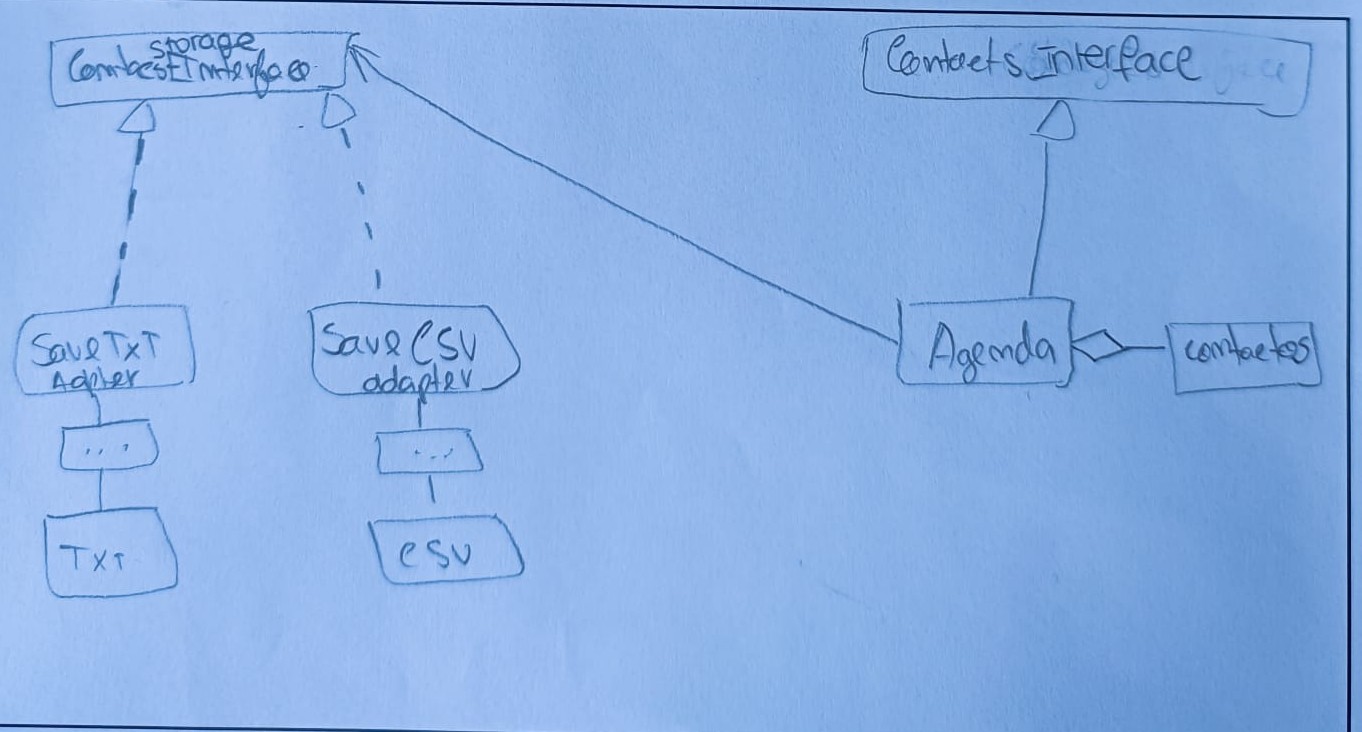 storage
Contacts Interface
SaveTxT
Adpter
...
TxT
Save CSV
adapter
...
CSV
Agenda
contactos